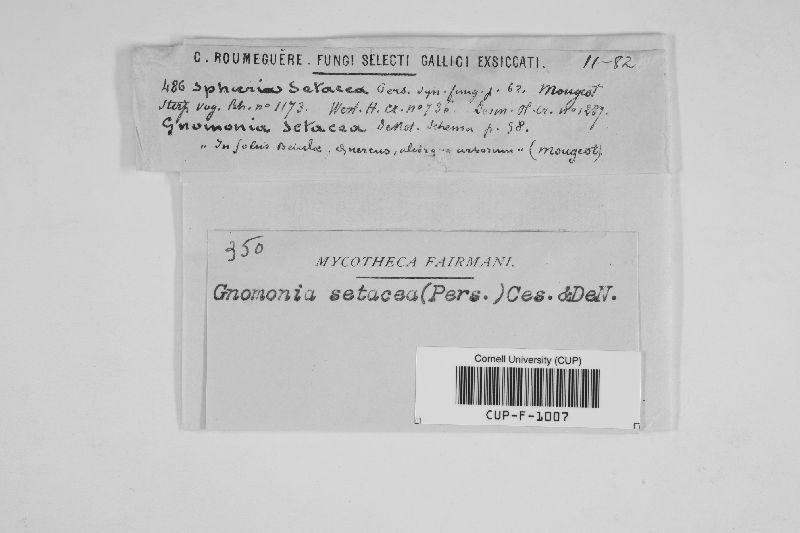 C. ROUMEGUÈRE. FUNGI SELECTI GALLICI EXSICCATI. 11-82
486 Sphæria Setacea Pers. Syn. fung. p. 62. Mougeot
Stirp. Vog. Rh. nº 1173. West. H. cr. nº 730. Desm. Pl. Cr. nº 1287.
Gnomonia Setacea DeNot. Schema p. 58.
" In foliis Betulæ, Quercus, arborum " (Mougeot).
350
MYCOTHECA FAIRMANI.
Gnomonia setacea(Pers.)Ces.&DeN.
Cornell University (CUP)
CUP-F-1007